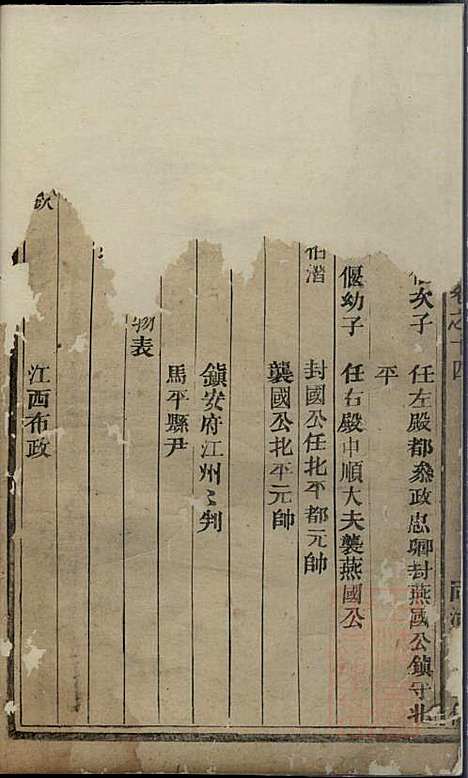 卷之十四
次子 任左殿都叅政忠卿封燕國公鎮守北
平
偃幼子 任右殿中順大夫襲燕國公
封國公任北平都元帥
襲國公北平元帥
鎮安府江州〻判
馬平縣尹
表
江西布政